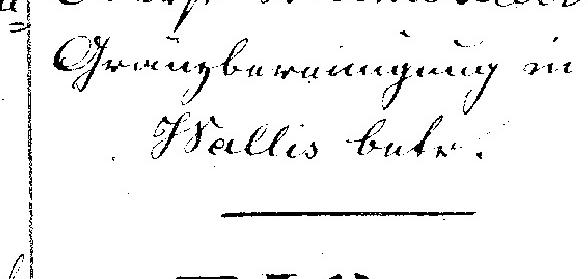 Gränzbereinigung in
Wallis betr.